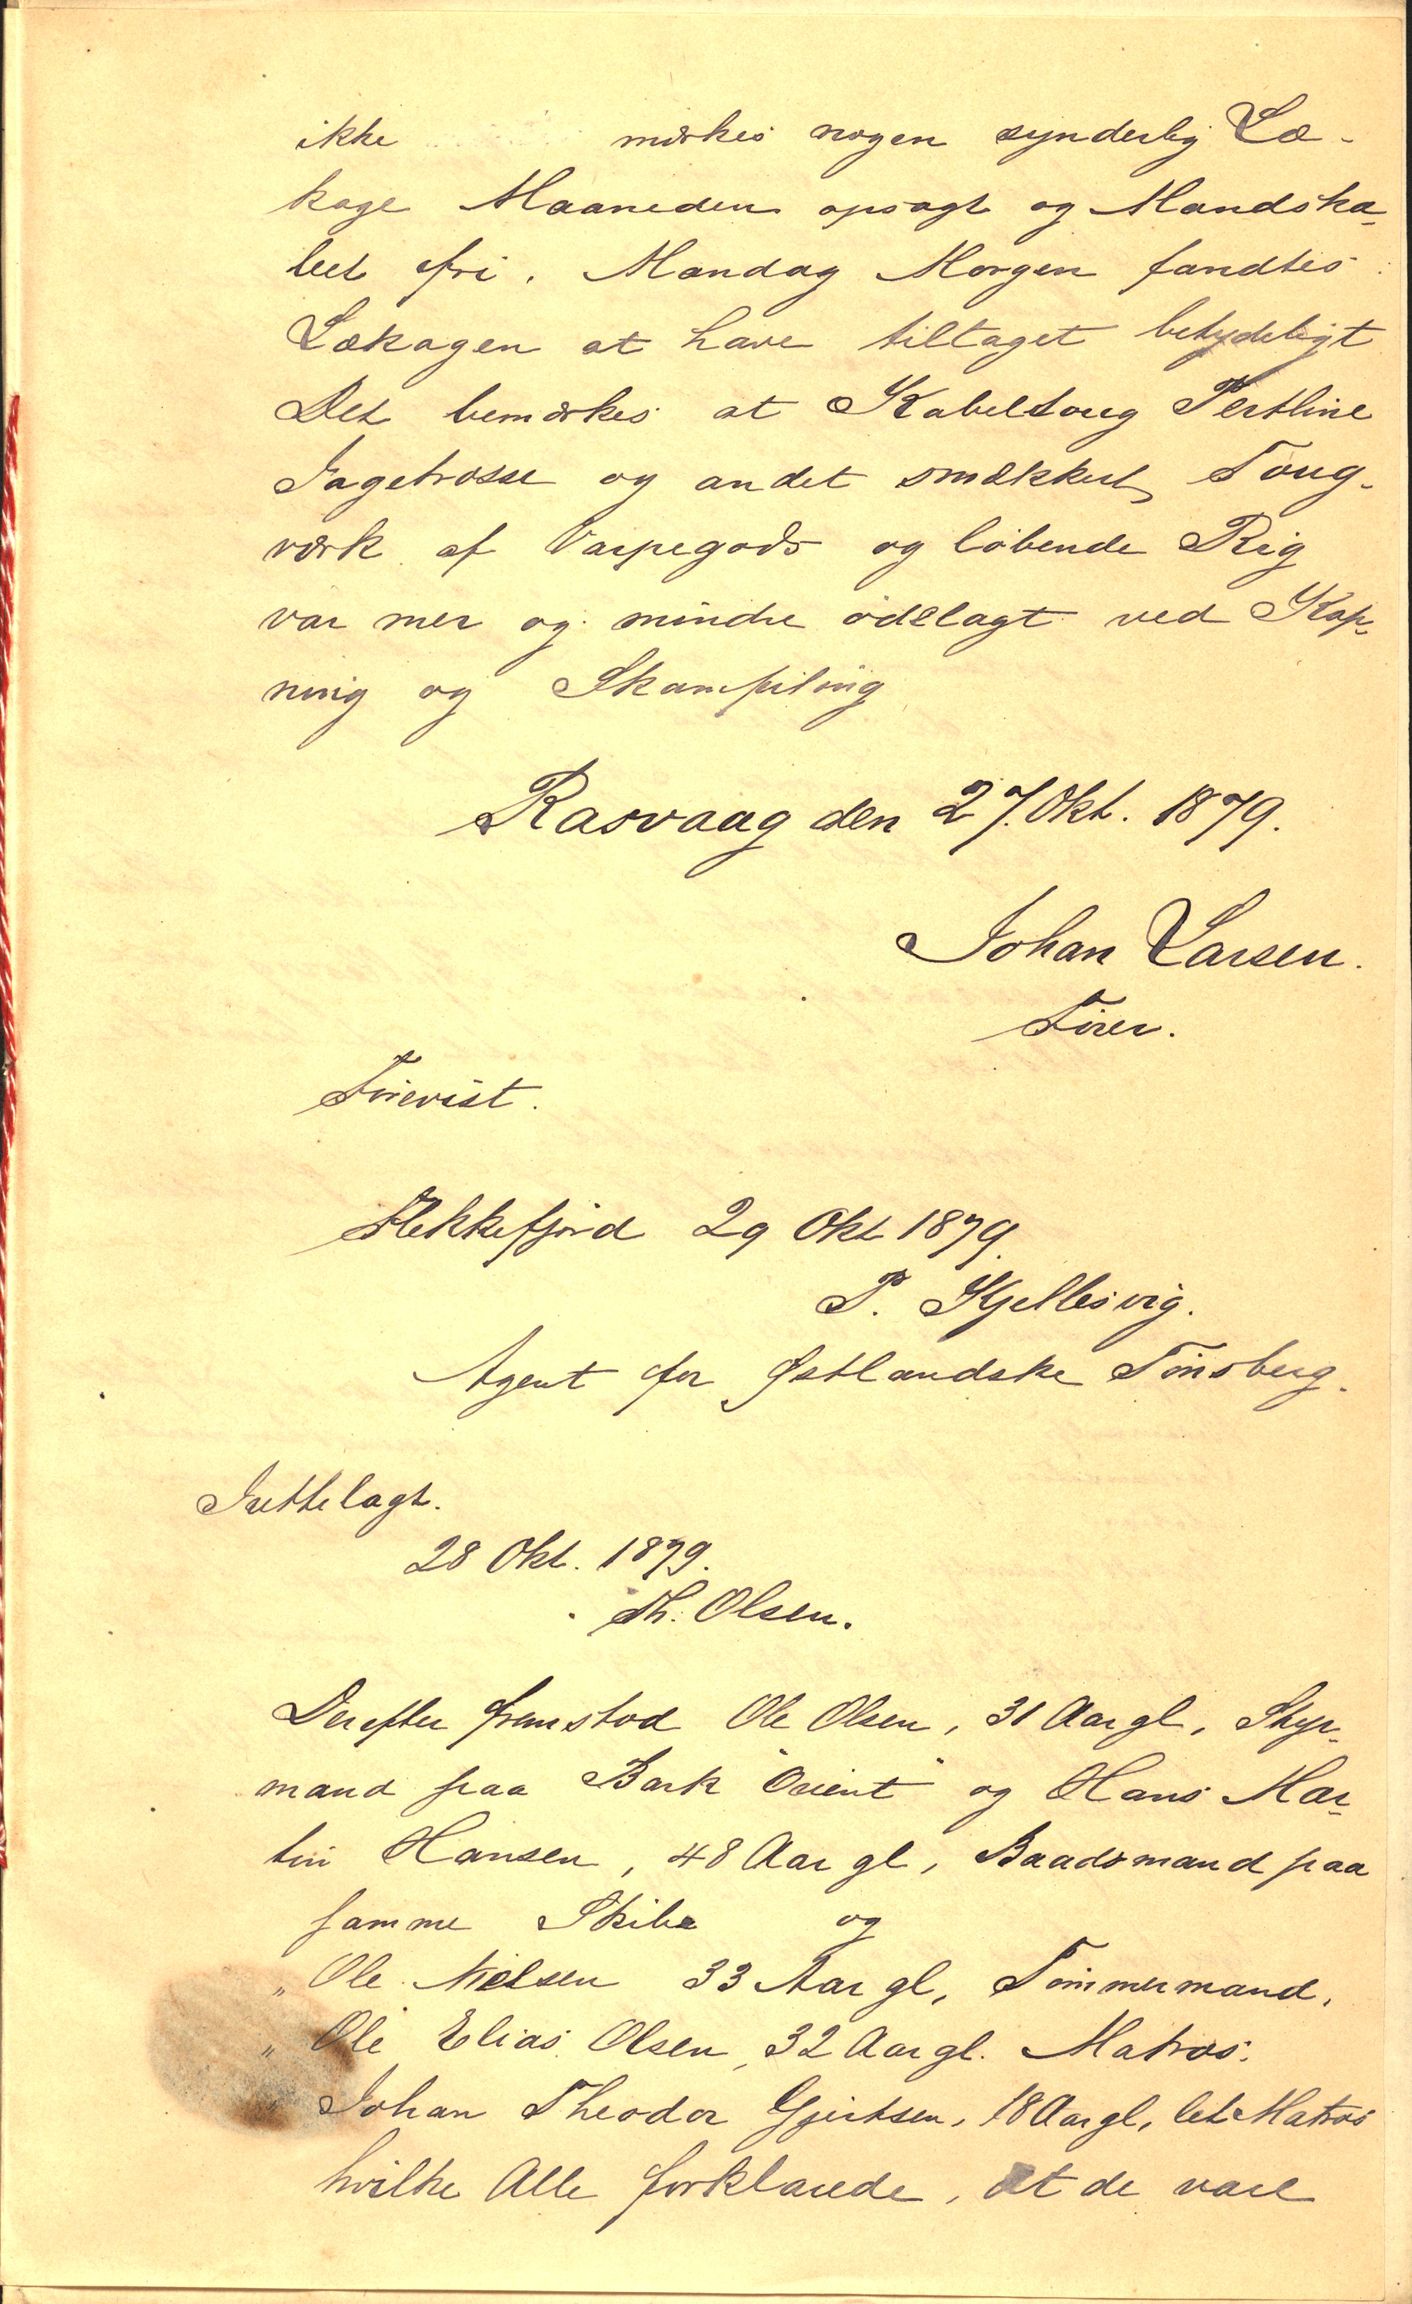 ikke mærkes nogen synderlig Læ-
kage Maaneden opsagt og Mandska-
bet fri. Mandag Morgen fandtes
Lækagen at have tiltaget betydeligt
Det bemærkes at Kabeltoug Pertline
Jagetrosse og andet smækkert Toug-
værk af Varpegods og løbende Rig
var mer og mindre ödelagt ved Kap-
ning og Skamfiling
Rasvaag den 27. Okt. 1879.
Johan Larsen.
Förer.
Forevist.
Flekkefjord 29 Okt 1879.
P. Kjellesvig.
Agent for Østlandske Tönsberg.
Irettelagt.
28 Okt. 1879.
Th. Olsen.
Derefter fremstod Ole Olsen, 31 Aar gl, Styr-
mand paa Bark "Orient" og Hans Mar-
tin Hansen, 48 Aar gl, Baadsmand paa
samme Skibe og
" Ole Nielsen 33 Aar gl, Tömmermand,
" Ole Elias Olsen, 32 Aar gl. Matros.
" Johan Theodor Gjertsen, 18 Aar gl, let Matros
hvilke Alle forklarede, at de vare